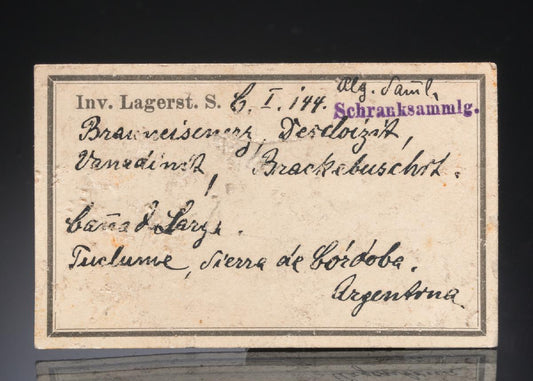 Alg. Saml.
Inv. Lagerst. S. C. I. 144.
Schranksammlg.
Brauneisenerz, Descloizit,
Vanadinit, Brackebuschit.
Caña d. Larga.
Tuclume, Sierra de Córdoba.
Argentina